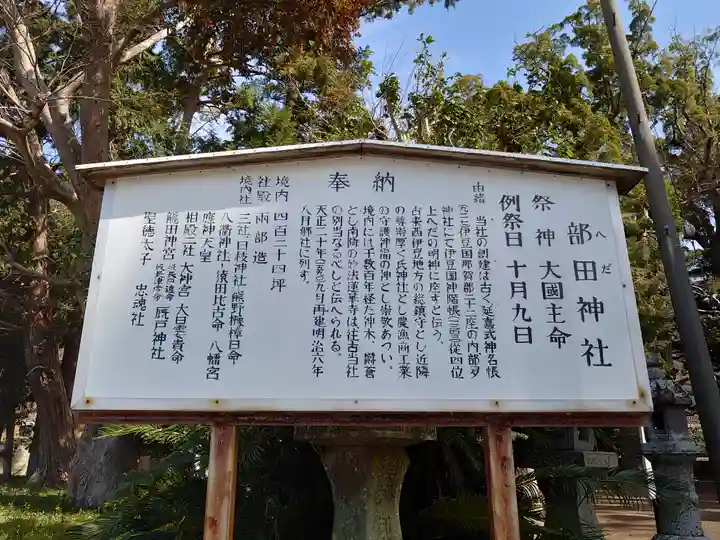 奉納
へだ
部田神社
祭神 大國主命
例祭日 十月九日
由緒 当社の創建は古く延喜式神名帳
伊豆国那賀郡二十二座の内部夛
神社にて伊豆国神階帳 従四位
上へだの明神に座すと伝う。
古来西伊豆地方の総鎮守とし近隣
の尊崇厚く氏神社とし農漁商工業
の守護神福の神とし崇敬あつい。
境内には千数百年経た神木、爵蒼
とし南隣の妙法蓮華寺は往古当社
の別当なるべしと伝へられる。
天正二十年 九月再建明治六年
八月郷社に列す。
境内 四百二十四坪
社殿 両部造
境内社 三社 日枝神社 熊野樟樟日命
八衢神社 猿田比古命 八幡宮
應神天皇
相殿二社 大神宮 大日孁貴命
熊田神宮 厩戸神社
聖徳太子 忠魂社